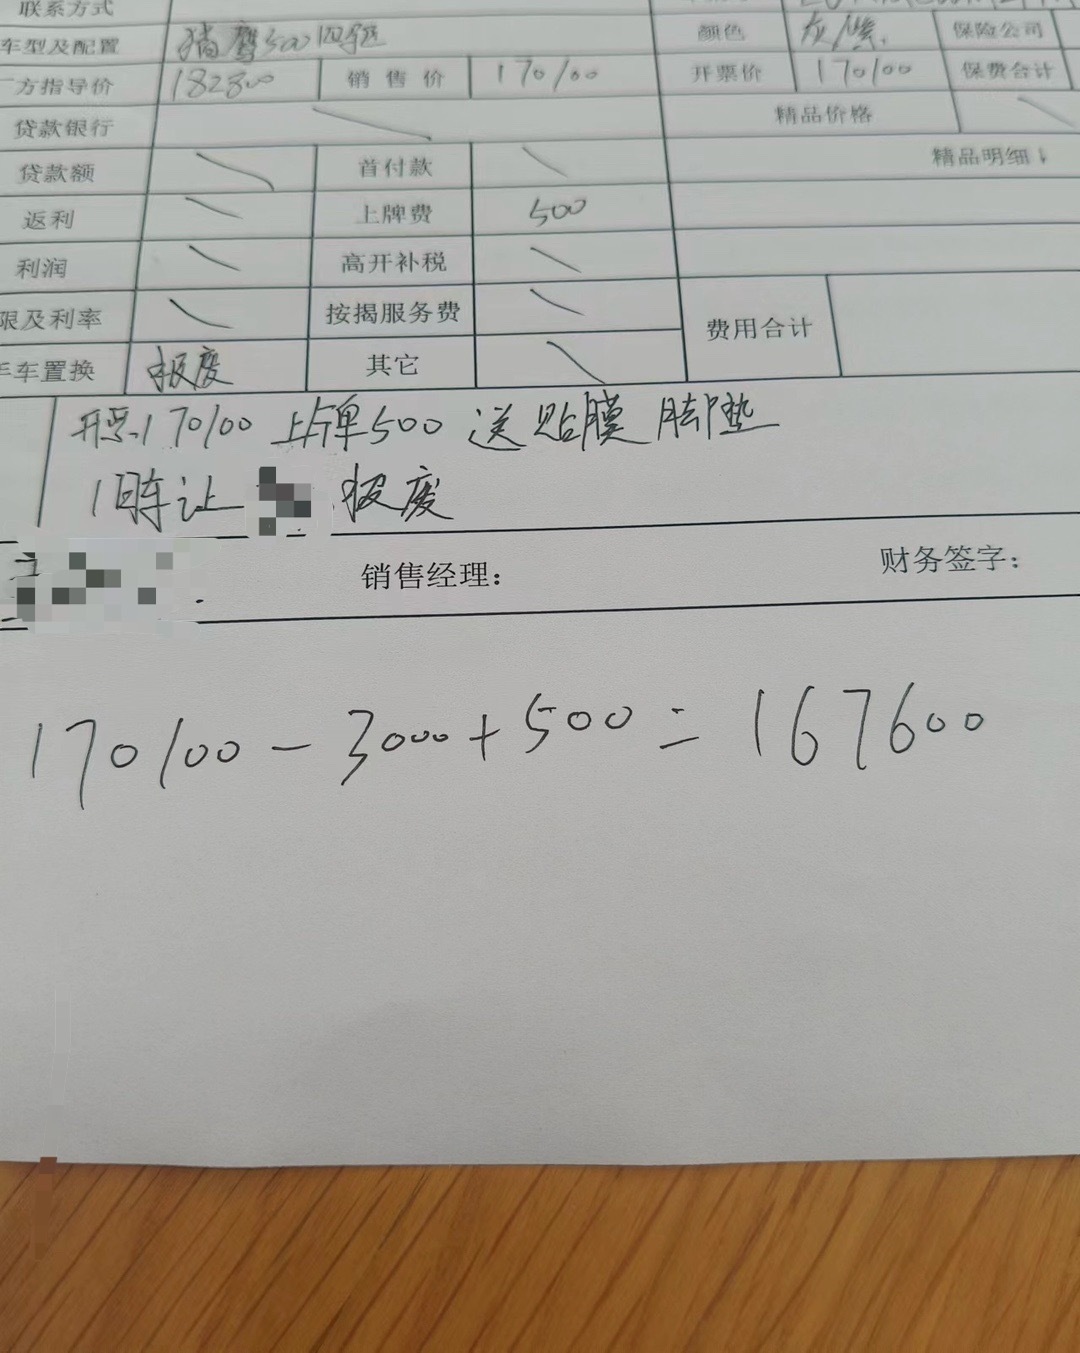 联系方式
车型及配置 猎鹰500四驱 颜色 灰/黑 保险公司
方指导价 182800 销售价 170100 开票价 170100 保费合计
贷款银行 精品价格
贷款额 首付款 精品明细
返利 上牌费 500
利润 高开补税
限及利率 按揭服务费 费用合计
车置换 报废 其它
开票170100 上牌500 送贴膜 脚垫
旧车让 报废
销售经理: 财务签字:
170100-3000+500=167600